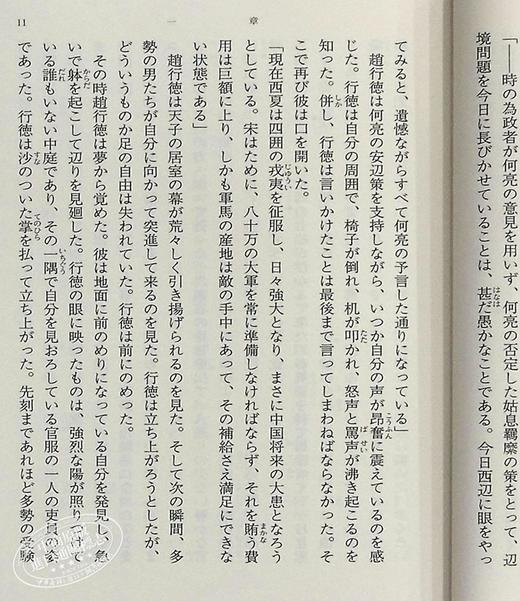 「――時の為政者が何亮の意見を用いず、何亮の否定した姑息羈縻の策をとって、辺
境問題を今日に長びかせていることは、甚だ愚かなことである。今日西辺に眼をやっ
11
一章
てみると、遺憾ながらすべて何亮の予言した通りになっている」
趙行徳は何亮の安辺策を支持しながら、いつか自分の声が昂奮に震えているのを感
じた。行徳は自分の周囲で、椅子が倒れ、机が叩かれ、怒声と罵声が沸き起こるのを
知った。併し、行徳は言いかけたことは最後まで言ってしまわねばならなかった。そ
こで再び彼は口を開いた。
「現在西夏は四囲の戎夷を征服し、日々強大となり、まさに中国将来の大患となろう
としている。宋はために、八十万の大軍を常に準備しなければならず、それを賄う費
用は巨額に上り、しかも軍馬の産地は敵の手中にあって、その補給さえ満足にできな
い状態である」
趙行徳は天子の居室の幕が荒々しく引き揚げられるのを見た。そして次の瞬間、多
勢の男たちが自分に向かって突進して来るのを見た。行徳は立ち上がろうとしたが、
どういうものか足の自由は失われていた。行徳は前にのめった。
その時趙行徳は夢から覚めた。彼は地面に前のめりになっている自分を発見し、急
いで躰を起こして辺りを見廻した。行徳の眼に映ったものは、強烈な陽が照りつけて
いる誰もいない中庭であり、その一隅で自分を見おろしている官服の一人の吏員の姿
であった。行徳は沙のついた掌を払って立ち上がった。先刻まであれほど多勢の受験